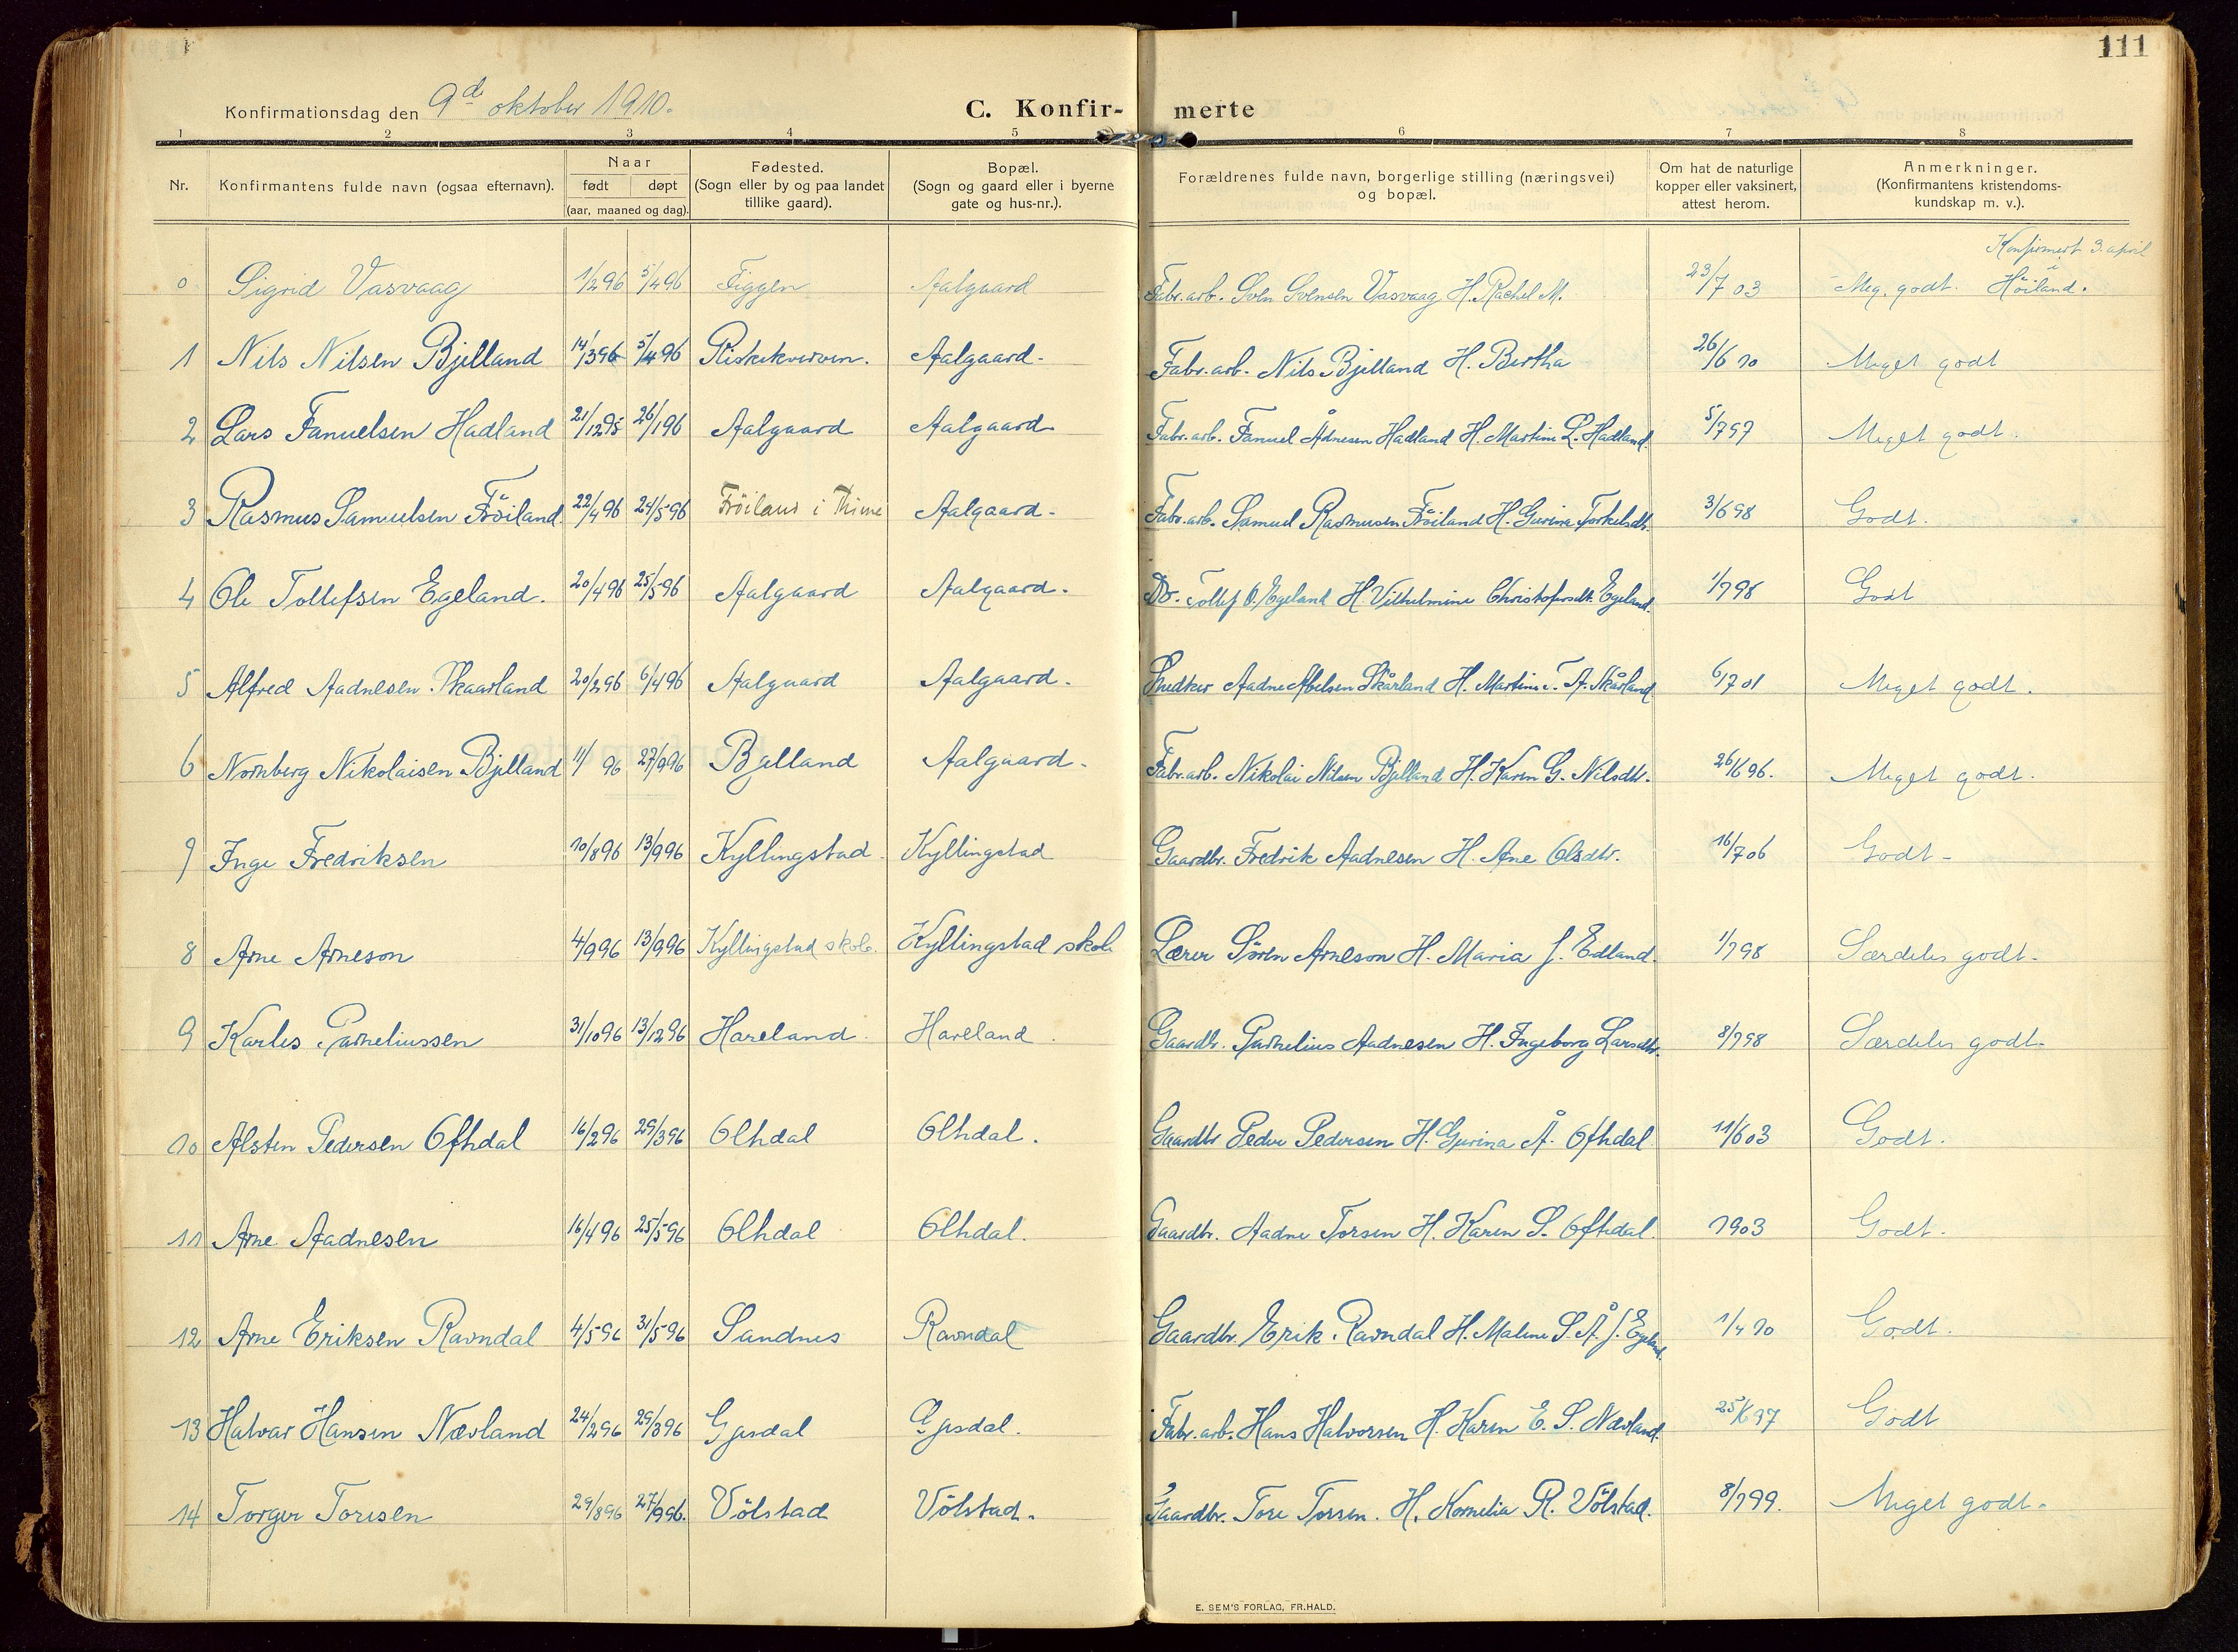 111
Konfirmationsdag den 9de oktober 1910.
C. Konfir- merte
1 2 3 4 5 6 7 8
Nr. Konfirmantens fulde navn (ogsaa efternavn). Naar født døpt (aar, maaned og dag). Fødested. (Sogn eller by og paa landet tillike gaard). Bopæl. (Sogn og gaard eller i byerne gate og hus-nr.). Forældrenes fulde navn, borgerlige stilling (næringsvei) og bopæl. Om hat de naturlige kopper eller vaksinert, attest herom. Anmerkninger. (Konfirmantens kristendoms-kundskap m. v.).
0 Sigrid Vasvaag 1/2 96 5/4 96 Figgen Aalgaard Fabr. arb. Sven Svensen Vasvaag H. Rachel M. 23/7 03 Meg. godt. Konfirmert 3. april i Höiland.
1 Nils Nilsen Bjelland 14/3 96 5/4 96 Riskekverven. Aalgaard. Fabr. arb. Nils Bjelland H. Bertha 26/6 10 Meget godt
2 Lars Fanuelsen Hadland 21/12 95 26/1 96 Aalgaard Aalgaard Fabr. arb. Fanuel Ådnesen Hadland H. Martine L. Hadland. 5/7 97 Meget godt.
3 Rasmus Samuelsen Fröiland. 22/4 96 24/5 96 Fröiland i Thime Aalgaard. Fabr. arb. Samuel Rasmusen Fröiland H. Gurina Torkelsdt. 3/6 98 Godt.
4 Ole Tollefsen Egeland. 20/4 96 25/5 96 Aalgaard Aalgaard. Do. Tollef O. Egeland H. Vilhelmine Christofersdt. Egeland. 1/7 98 Godt
5 Alfred Aadnesen Skaarland 20/2 96 6/4 96 Aalgaard Aalgaard. Snedker Aadne Abelsen Skårland H. Martine T. A. Skårland 6/7 01 Meget godt.
6 Nornberg Nikolaisen Bjelland 11/ 96 27/9 96 Bjelland Aalgaard. Fabr. arb. Nikolai Nilsen Bjelland H. Karen G. Nilsdt. 26/6 96. Meget godt.
7 Inge Fredriksen 10/8 96 13/9 96 Kyllingstad. Kyllingstad Gaardbr. Fredrik Aadnesen H. Ane Olsdtr. 16/7 06 Godt.
8 Arne Arneson 4/9 96 13/9 96 Kyllingstad skole. Kyllingstad skole Lærer Sören Arneson H. Maria f. Edland. 1/7 98 Særdeles godt.
9 Karles Parneliussen 31/10 96 13/12 96 Hareland. Hareland. Gaardbr. Parnelius Aadnesen H. Ingeborg Larsdtr. 8/7 98 Særdeles godt.
10 Alsten Pedersen Ofthdal 16/2 96 29/3 96 Olhdal Olhdal. Gaardbr. Peder Pedersen H. Gurina Å. Ofthdal 11/6 03 Godt.
11 Arne Aadnesen 16/4 96 25/5 96 Olhdal Olhdal. Gaardbr. Aadne Torsen H. Karen S. Ofthdal. 1903 Godt.
12 Arne Eriksen Ravndal 4/5 96 31/5 96 Sandnes Ravndal Gaardbr. Erik Ravndal H. Malene S. Å. f. Egeland. 1/4 10 Godt.
13 Halvar Hansen Nævland 24/2 96 29/3 96 Gjesdal Gjesdal. Fabr. arb. Hans Halvorsen H. Karen E. S. Nævland. 25/6 97 Godt
14 Torger Toresen 29/8 96 27/9 96. Völstad Völstad. Gaardbr. Tore Torsen. H. Kornelia R. Völstad. 8/7 99. Meget godt.
E. SEM'S FORLAG, FR.HALD.